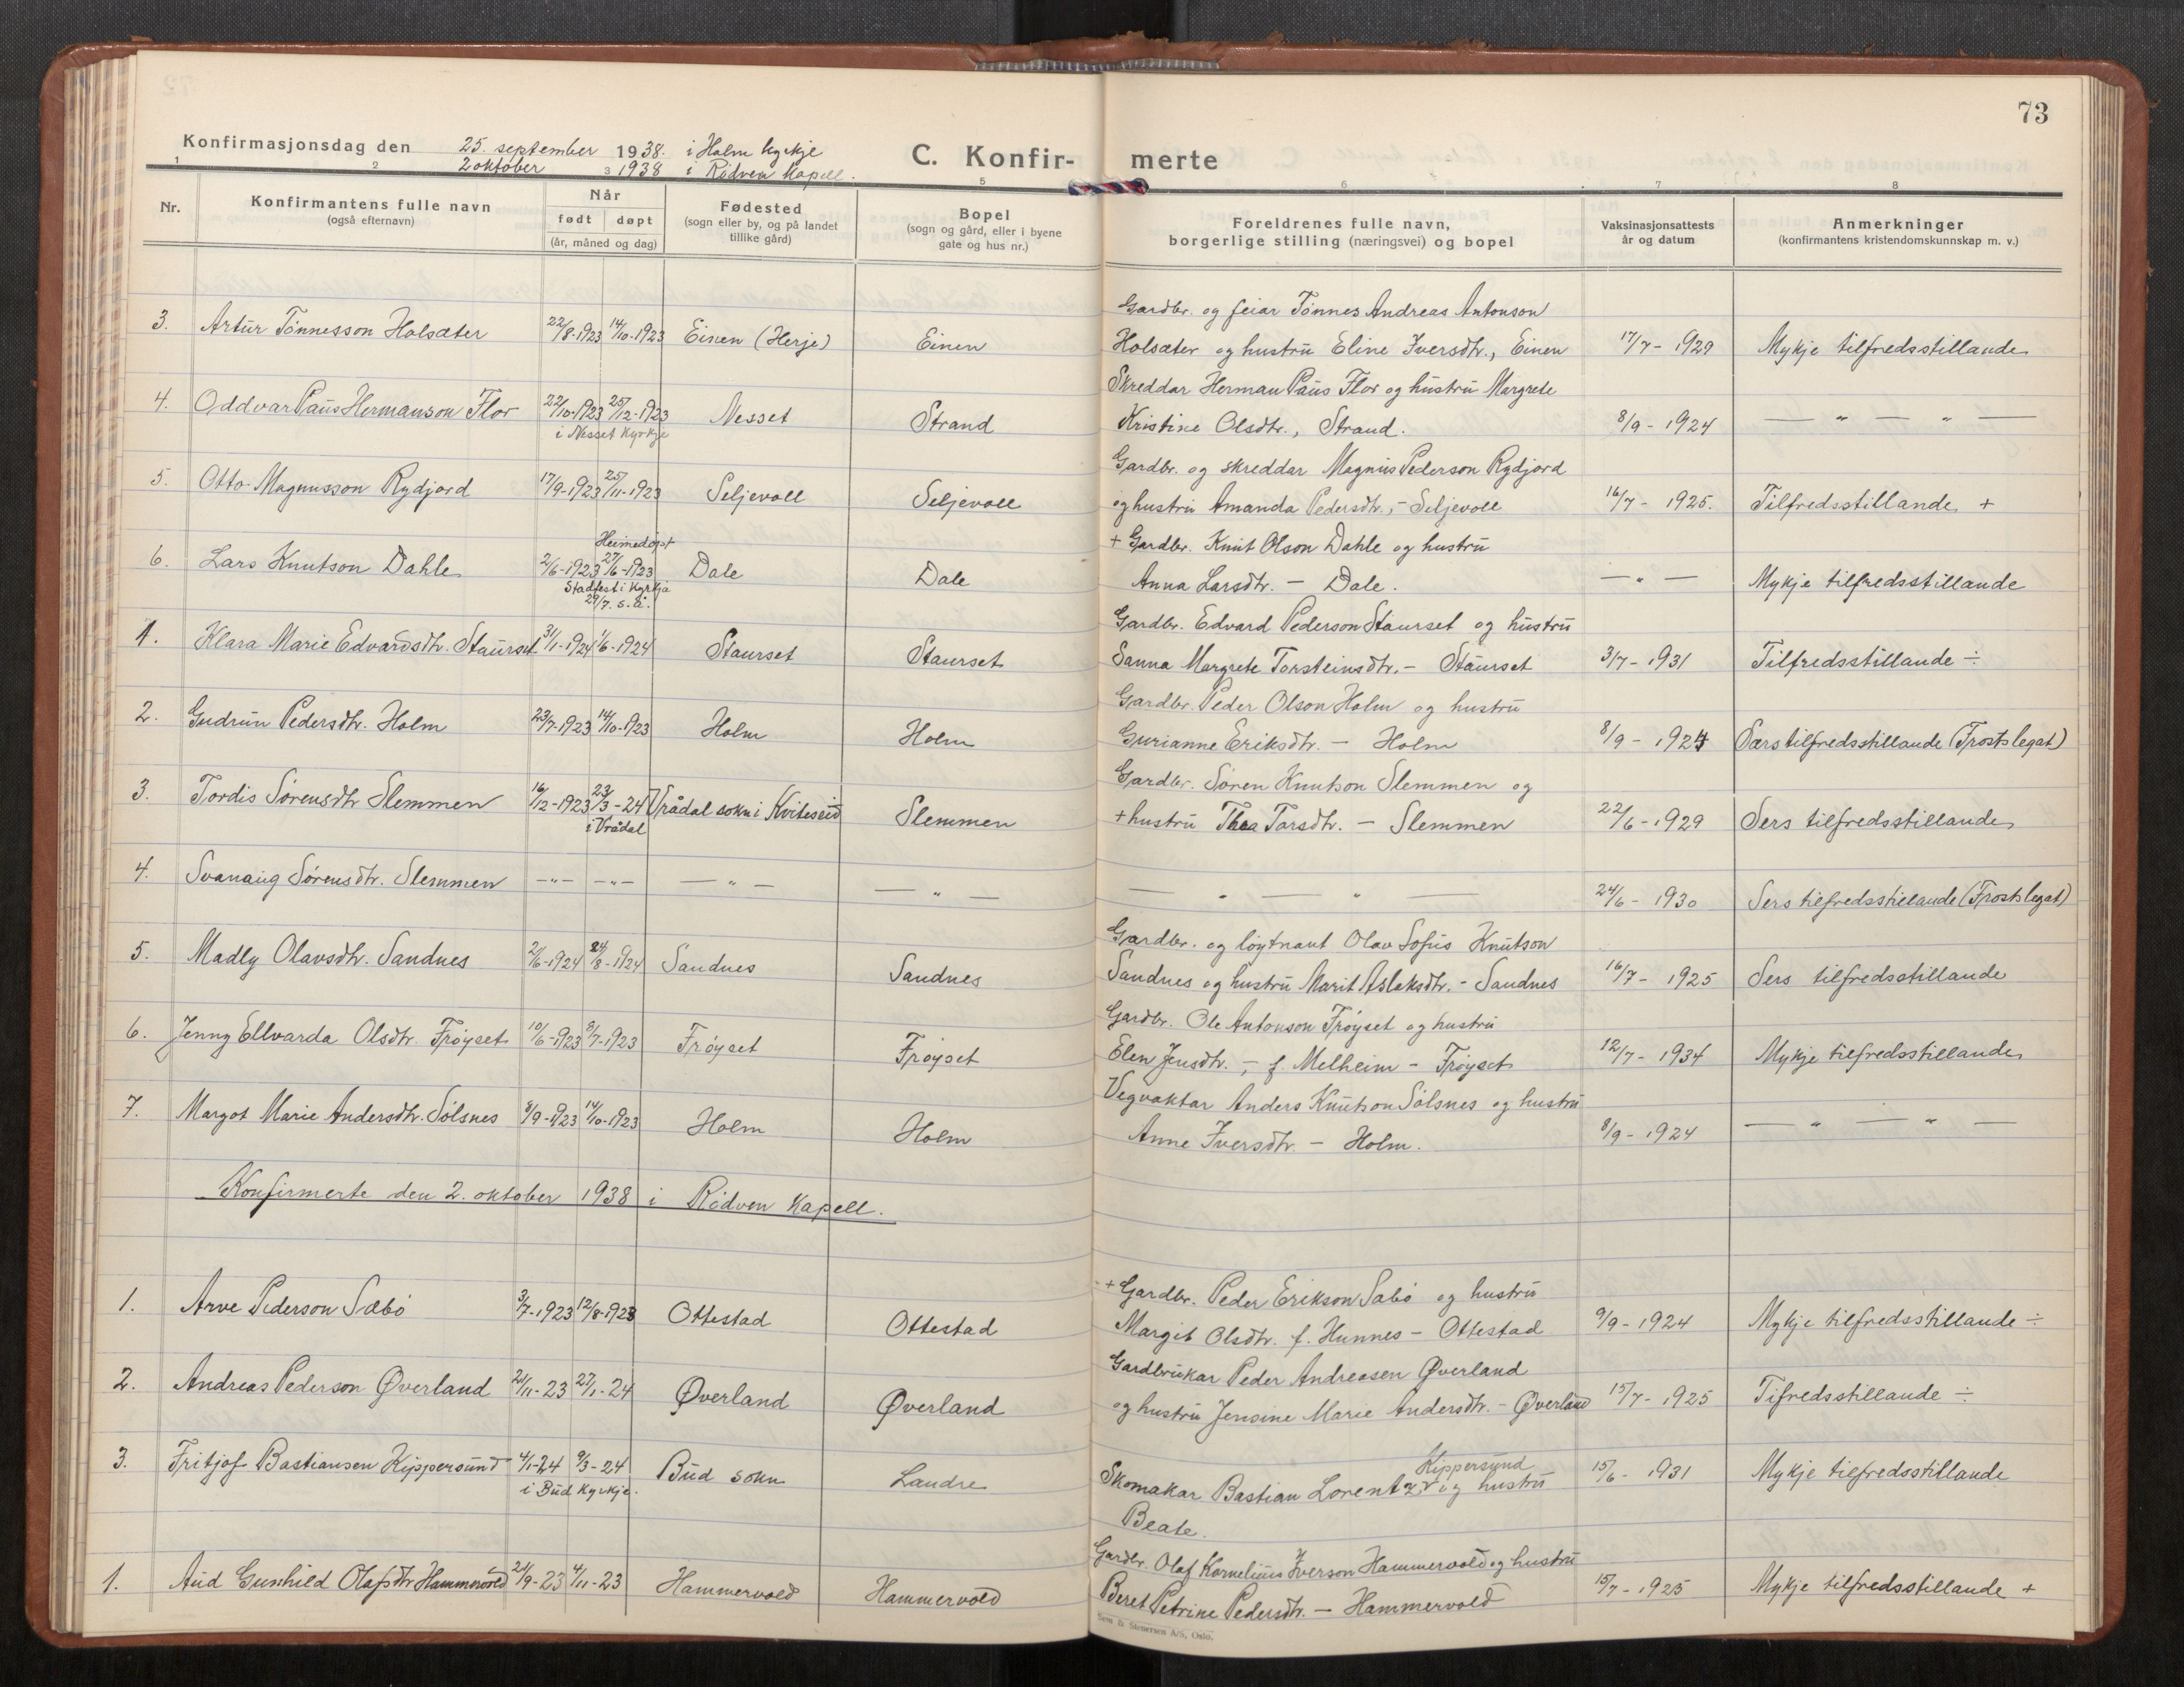 73
Konfirmasjonsdag den 25. september 1938. i Holm kyrkje
2 oktober 1938 i Rødven Kapell.
C. Konfirmerte
1 2 3 5 6 7 8
Nr.
Konfirmantens fulle navn
(også efternavn)
Når
født døpt
(år, måned og dag)
Fødested
(sogn eller by, og på landet
tillike gård)
Bopel
(sogn og gård, eller i byene
gate og hus nr.)
Foreldrenes fulle navn,
borgerlige stilling (næringsvei) og bopel
Vaksinasjonsattests
år og datum
Anmerkninger
(konfirmantens kristendomskunnskap m. v.)
Gardbr. og feiar Tønnes Andreas Antonson
3. Artur Tønnesson Holsæter 22/8-1923 14/10-1923 Einen (Herje) Einen Holsæter og hustru Eline Iversdtr., Einen 17/7-1929 Mykje tilfredsstillande
Skreddar Herman Paus Flor og hustru Margrete
4. Oddvar Paus Hermanson Flor 22/10-1923 25/12-1923 Nesset Strand Kristine Olsdtr., Strand. 8/9-1924 — " — " —
i Nesset Kyrkje
Gardbr. og skreddar Magnus Pederson Rydjord
5. Otto Magnusson Rydjord 17/9-1923 25/11-1923 Seljevoll Seljevoll og hustru Amanda Pedersdtr., - Seljevoll 16/7-1925. Tilfredsstillande +
Heimedøpt
+ Gardbr. Knut Olson Dahle og hustru
6. Lars Knutson Dahle 2/6-1923 27/6-1923 Dale Dale Anna Larsdtr. - Dale. — " — Mykje tilfredsstillande
Stadfest i Kyrkja
29/7. s.å.
Gardbr. Edvard Pederson Staurset og hustru
1. Klara Marie Edvardsdtr. Staurset 31/1-1924 1/6-1924 Staurset Staurset Sanna Margrete Torsteinsdtr. - Staurset 3/7-1931 Tilfredsstillande ÷
Gardbr. Peder Olson Holm og hustru
2. Gudrun Pedersdtr. Holm 23/7-1923 14/10-1923 Holm Holm Gurianne Eriksdtr. - Holm 8/9-1924 Særs tilfredsstillande (Frostslegat)
Gardbr. Søren Knutson Slemmen og
3. Tordis Sørensdtr Slemmen 16/12-1923 23/3-24 Vrådal sokn i Kviteseid Slemmen + hustru Thea Tarsdtr. - Slemmen 22/6-1929 Sers tilfredsstillande
i Vrådal
4. Svanaug Sørensdtr. Slemmen —"— —"— — " — — " — — " — " — 24/6-1930 Sers tilfredsstillande (Frostslegat)
Gardbr. og løytnant Olav Sofus Knutson
5. Madly Olavsdtr. Sandnes 2/6-1924 24/8-1924 Sandnes Sandnes Sandnes og hustru Marit Aslaksdtr. - Sandnes 16/7-1925 Sers tilfredsstillande
Gardbr. Ole Antonson Frøyset og hustru
6. Jenny Ellvarda Olsdtr. Frøyset 10/6-1923 8/7-1923 Frøyset Frøyset Elen Jensdtr., f. Melheim - Frøyset 12/7-1934 Mykje tilfredsstillande
Vegvaktar Anders Knutson Sølsnes og hustru
7. Margot Marie Andersdtr. Sølsnes 8/9-1923 14/10-1923 Holm Holm Anne Iversdtr. - Holm. 8/9-1924 — " — " —
Konfirmerte den 2. oktober 1938 i Rødven Kapell.
+ Gardbr. Peder Erikson Sæbø og hustru
1. Arve Pederson Sæbø 3/7-1923 12/8-1923 Ottestad Ottestad Margit Olsdtr. f. Hunnes - Ottestad 9/9-1924 Mykje tilfredsstillande ÷
Gardbrukar Peder Andreasen Øverland
2. Andreas Pederson Øverland 21/11-23 27/1-24 Øverland Øverland og hustru Jensine Marie Andersdtr. - Øverland 15/7-1925 Tifredsstillande ÷
Kippersund
3. Fritjof Bastiansen Kippersund 4/1-24 9/3-24 Bud sokn Landre Skomakar Bastian Lorentz og hustru 15/6-1931 Mykje tilfredsstillande
i Bud Kyrkje.
Beate.
Gardbr. Olaf Kornelius Iverson Hammervold og hustru
1. Aud Gunhild Olafsdtr Hammervold 21/9-23 4/11-23 Hammervold Hammervold Beret Petrine Pedersdtr. - Hammervold 15/7-1925 Mykje tilfredsstillande +
Sem & Stenersen A/S, Oslo.